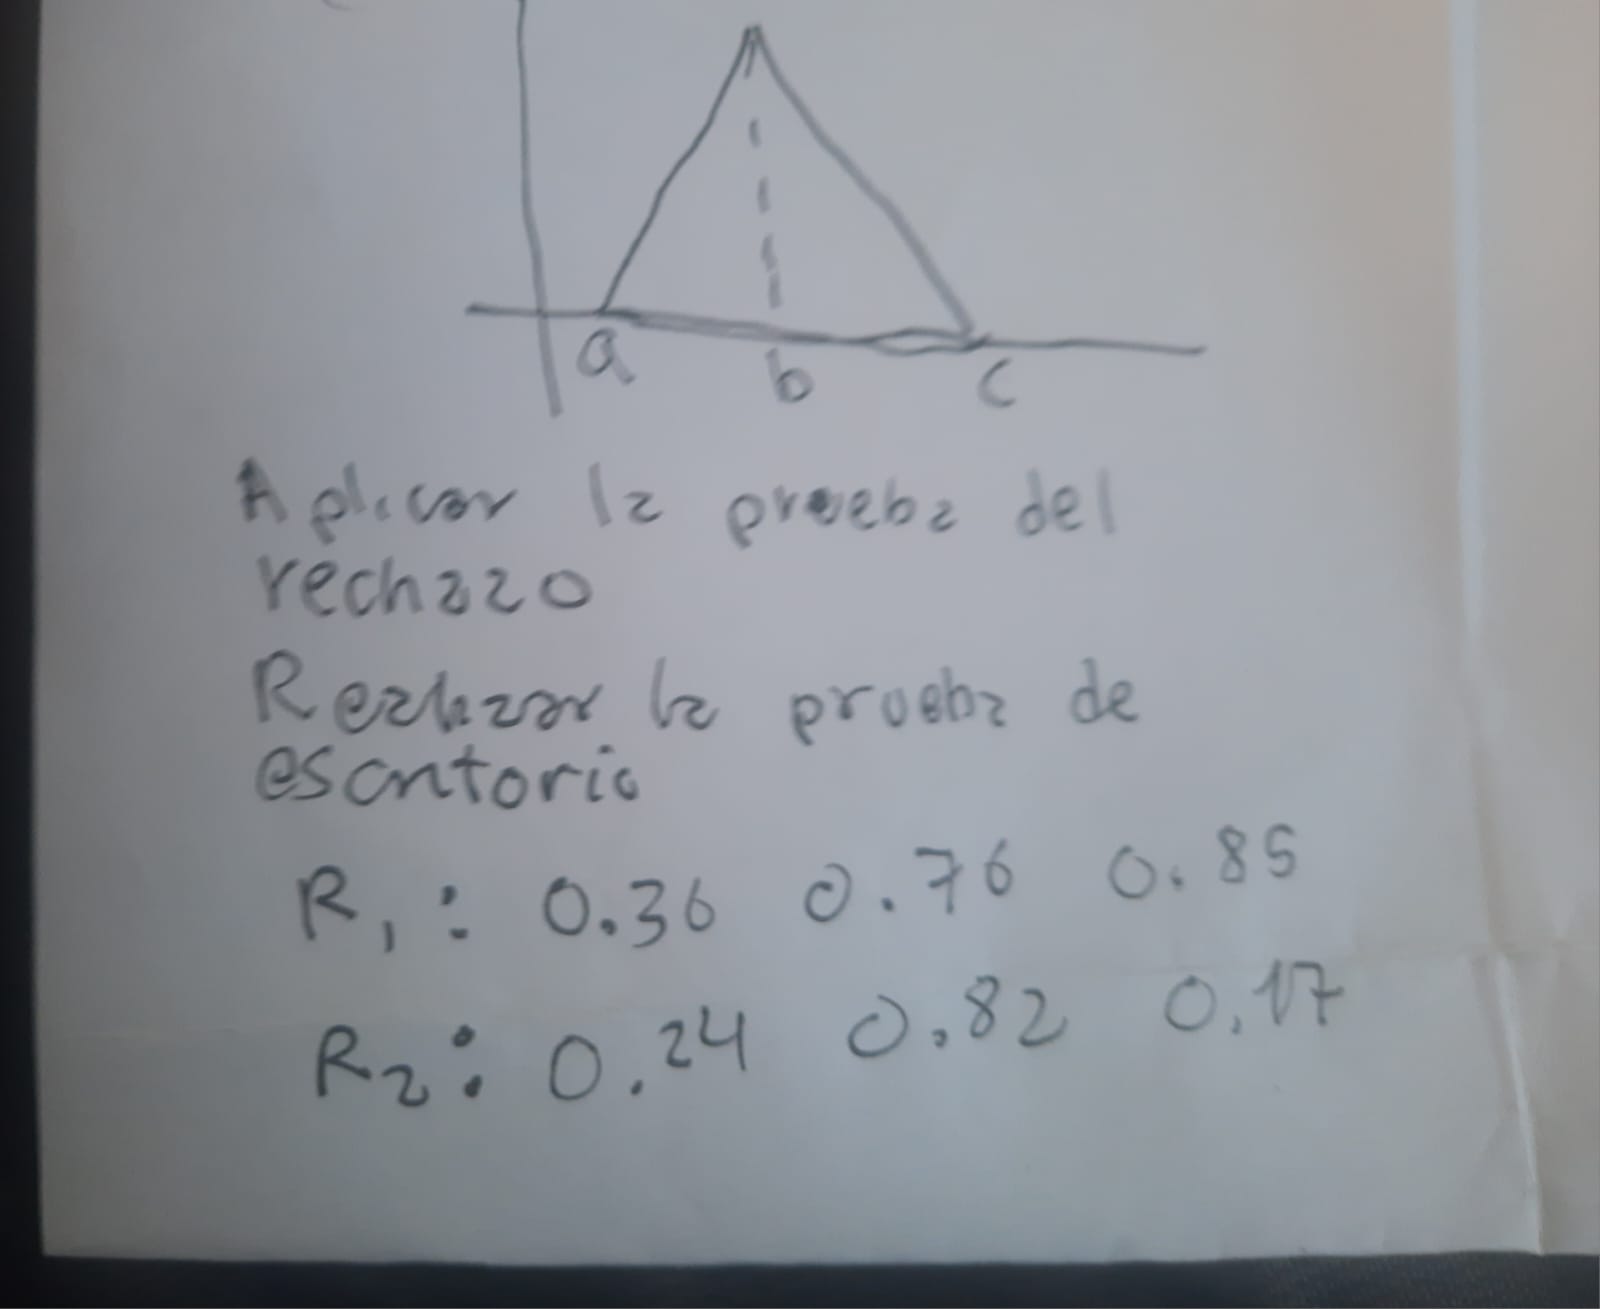 a
b
c
Aplicar la prueba del
rechazo
Realizar la prueba de
escritorio
R1: 0.36 0.76 0.85
R2: 0.24 0.82 0.17